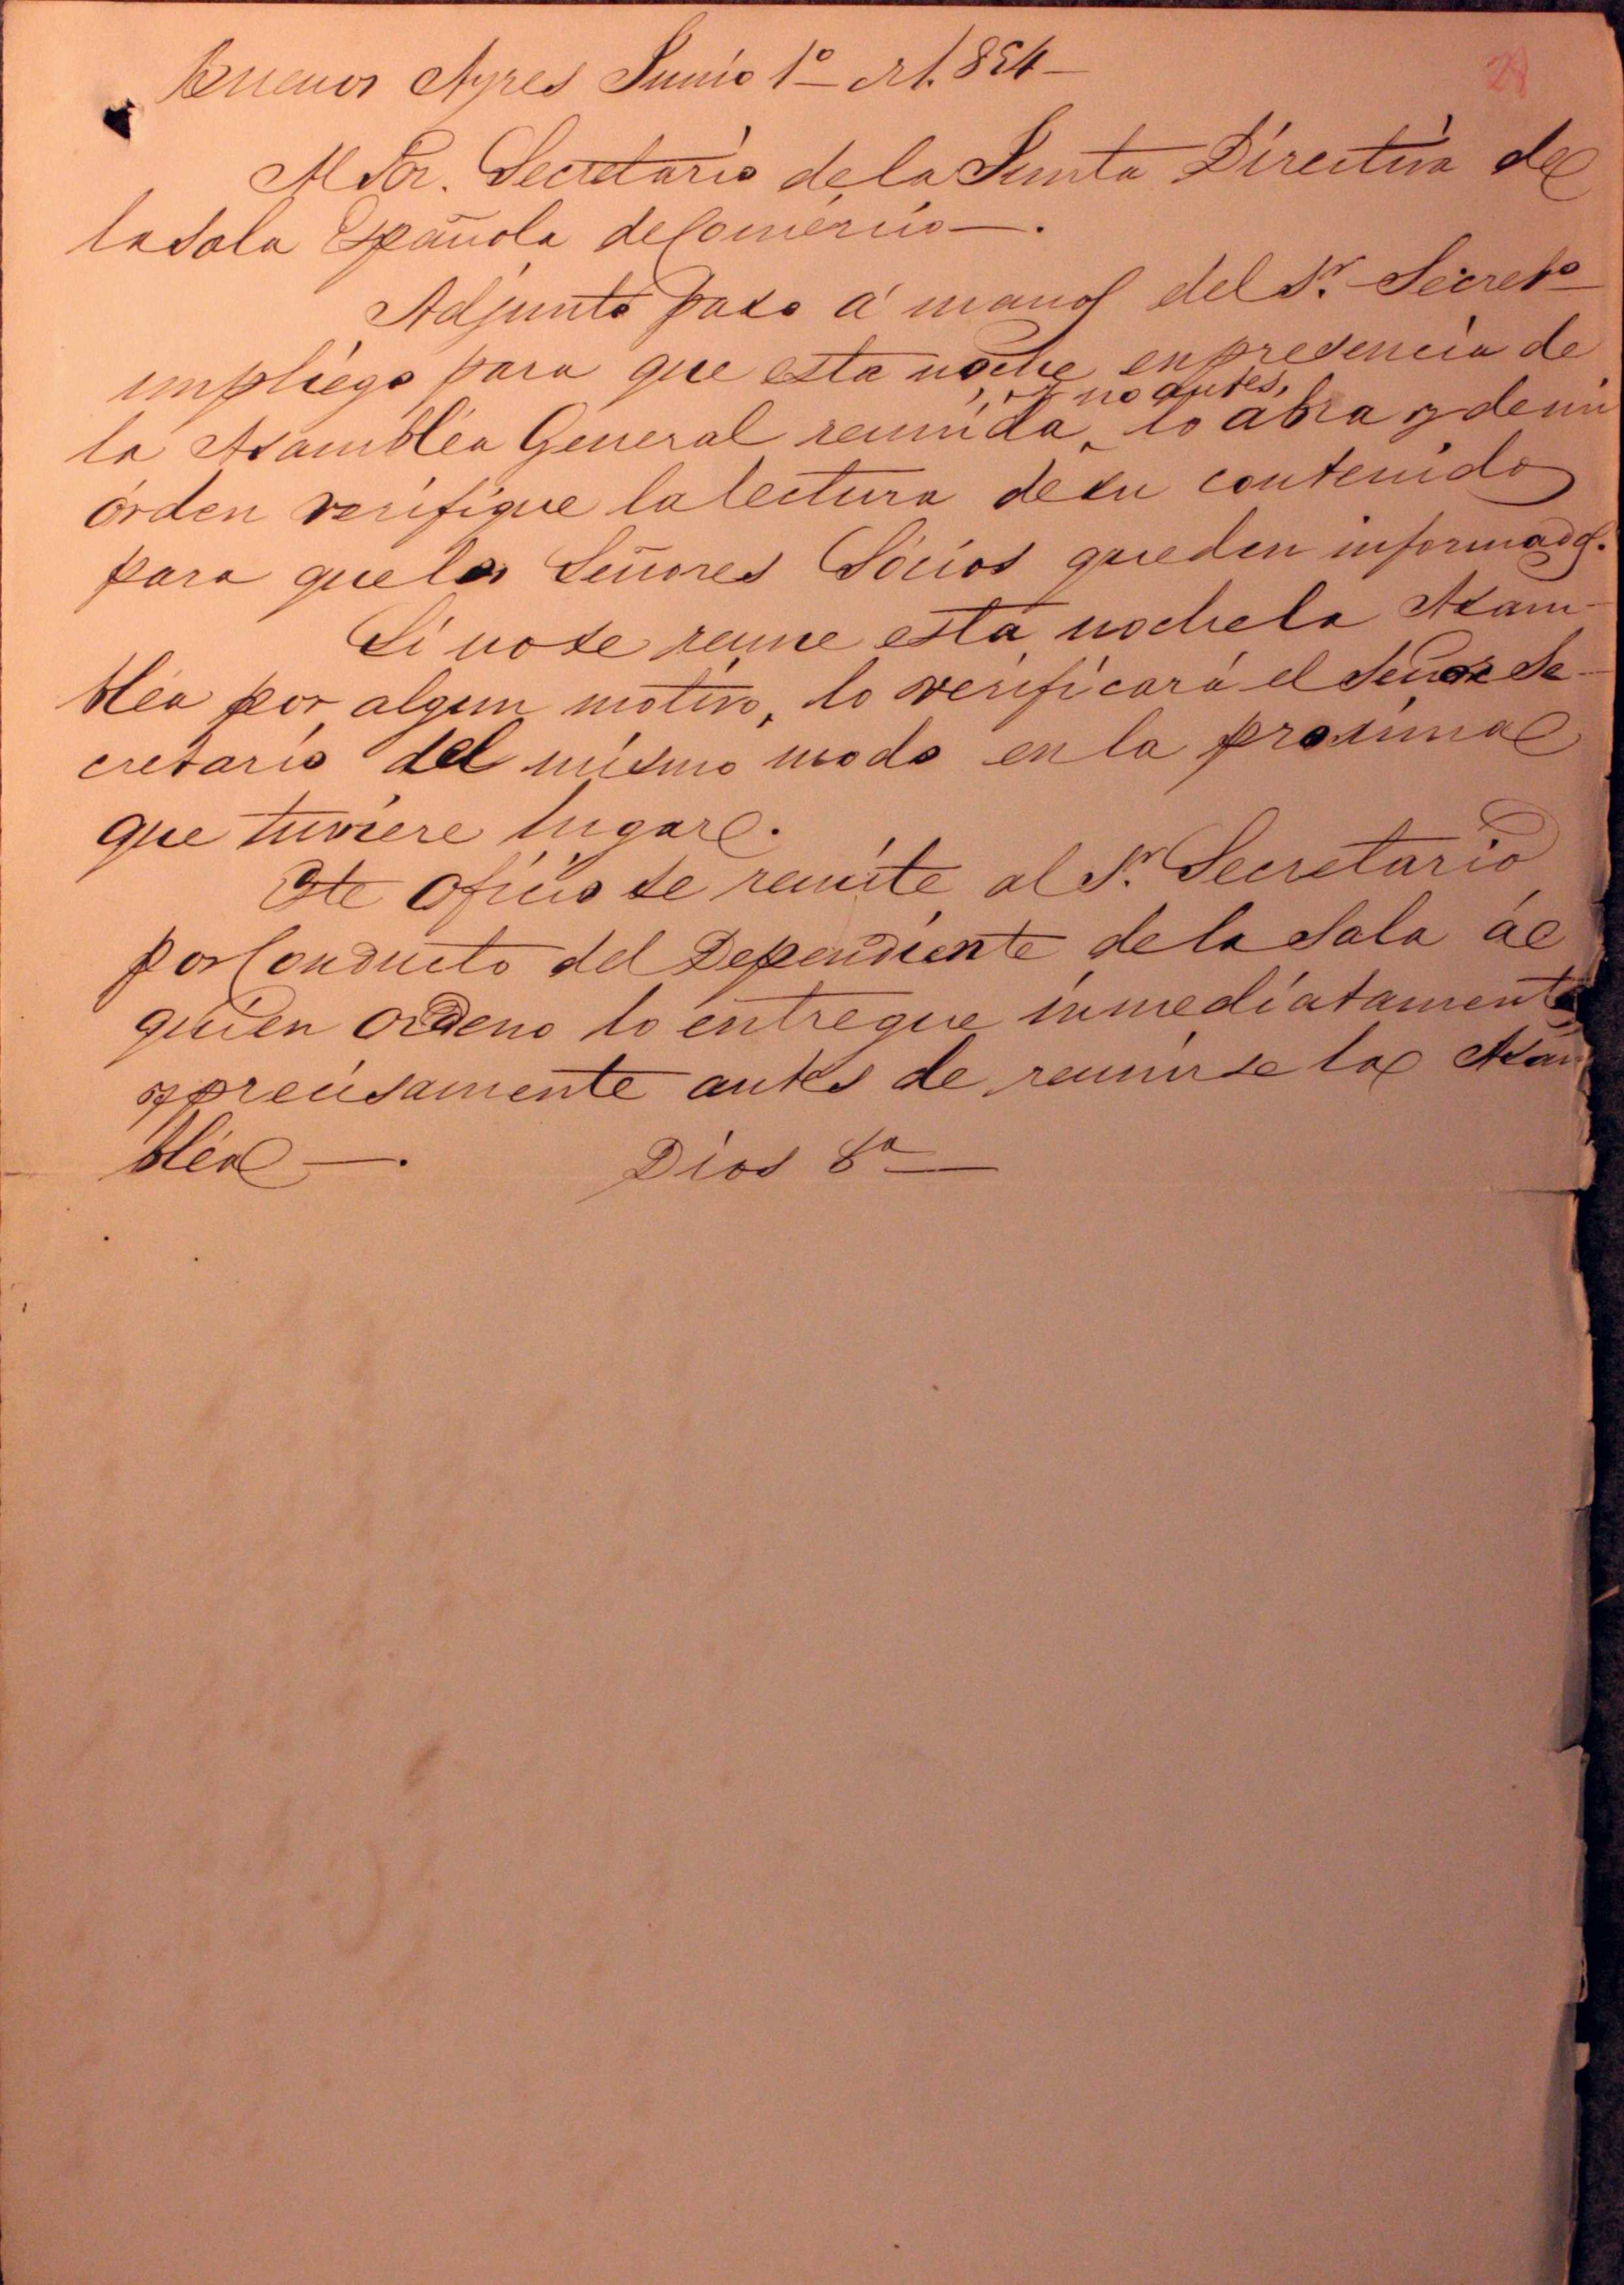 28
Buenos Ayres Junio 1º de 1.854—
Al Sor. Secretario de la Junta Directiva de
la Sala Española de Comércio—.
Adjunto paso á manos del Sr. Secretº
un pliego para que esta noche en presencia de
la Asambléa General reunida, y no antes, lo abra y de mi
órden verifique la lectura de su contenido
para que los Señores Sócios queden informados.
Si no se reune esta noche la Asam-
bléa por algun motivo, lo verificará el Señor Se-
cretario del mismo modo en la proxima
que tuviere lugar.
Este oficio se remite al Sr. Secretario
por Conducto del Dependiente de la Sala á
quien ordeno lo entregue inmediatamente
y precisamente antes de reunirse la Asam
bléa—. Dios &a—